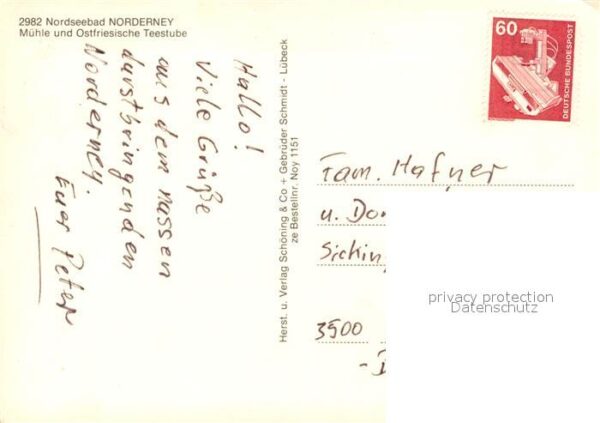 2982 Nordseebad NORDERNEY
Mühle und Ostfriesische Teestube
Hallo!
Viele Grüße
aus dem nassen
durstbringenden
Norderney.
Euer Peter
Herst. u. Verlag Schöning & Co + Gebrüder Schmidt - Lübeck
ze Bestellnr. Noy 1151
60
DEUTSCHE BUNDESPOST
Fam. Hafner
u. Do
Sicking
3500
privacy protection
Datenschutz